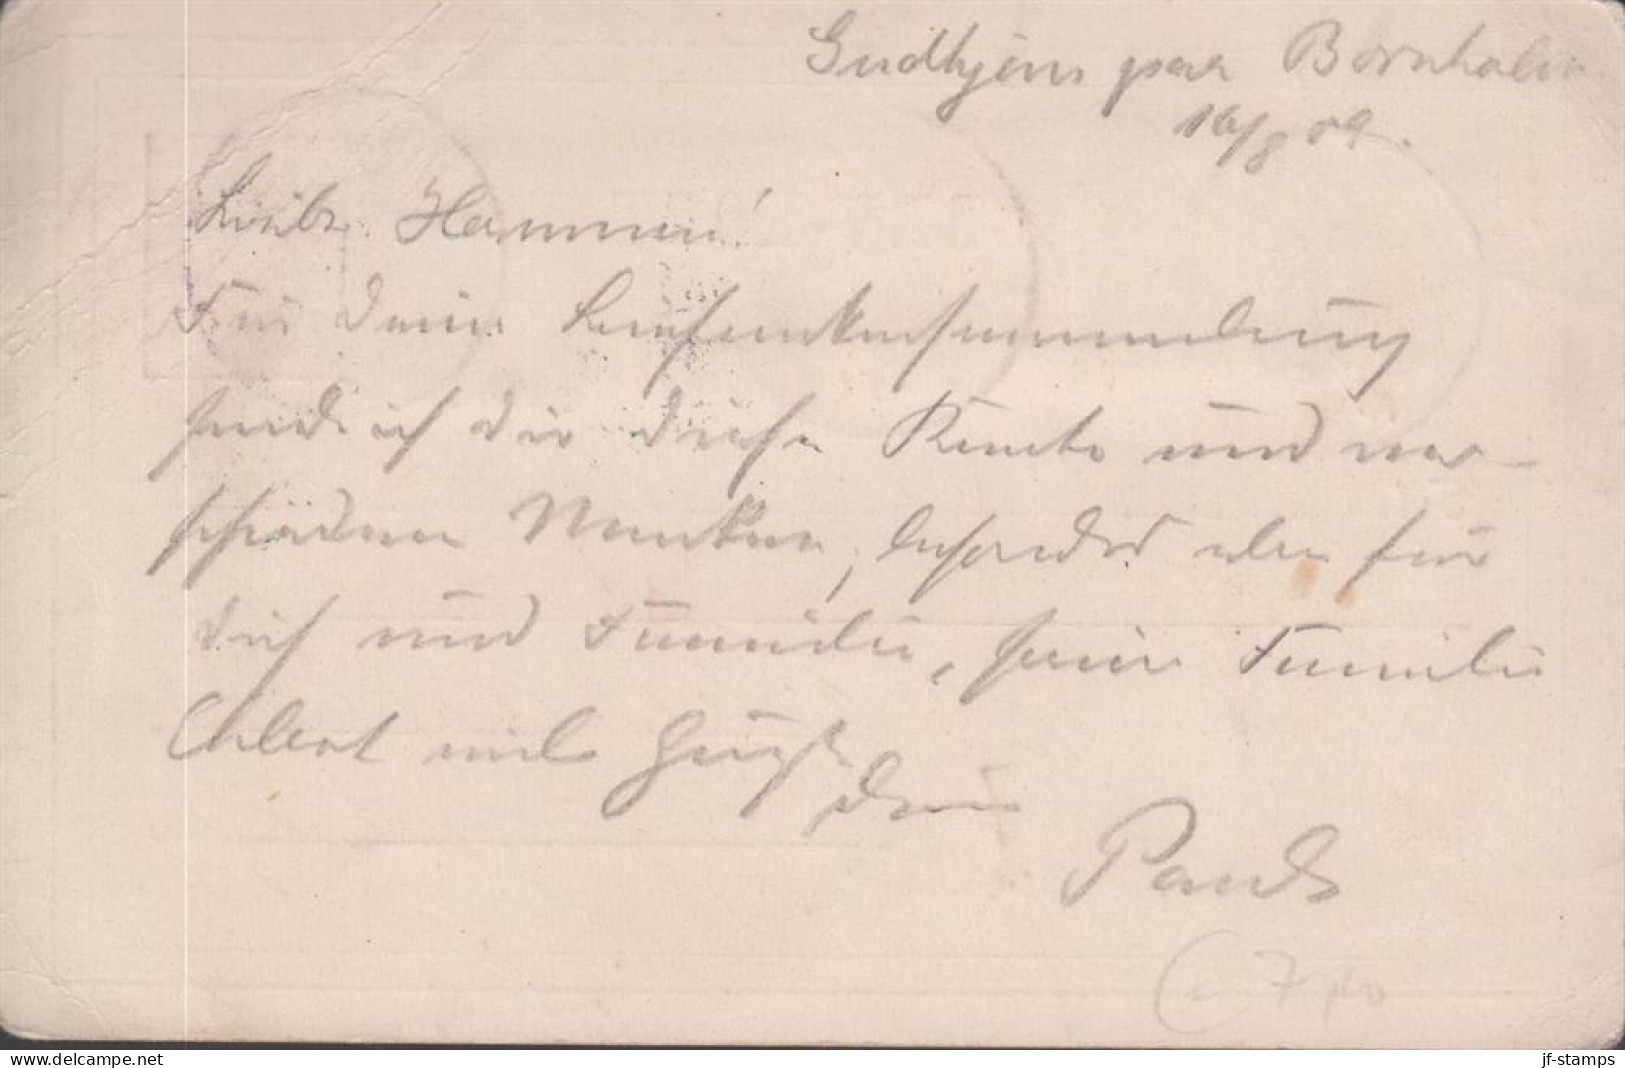 Gudhjem paa Bornholm
16/8 09.
Liebe Hammer!
Für Deine Briefmarkensammlung
sende ich dir diese Karte und ver-
schiedene Marken, besonders aber für
dich und Familie, seine Familie
mit Grüße
Dein
(- 7,50
www.delcampe.net
jf-stamps